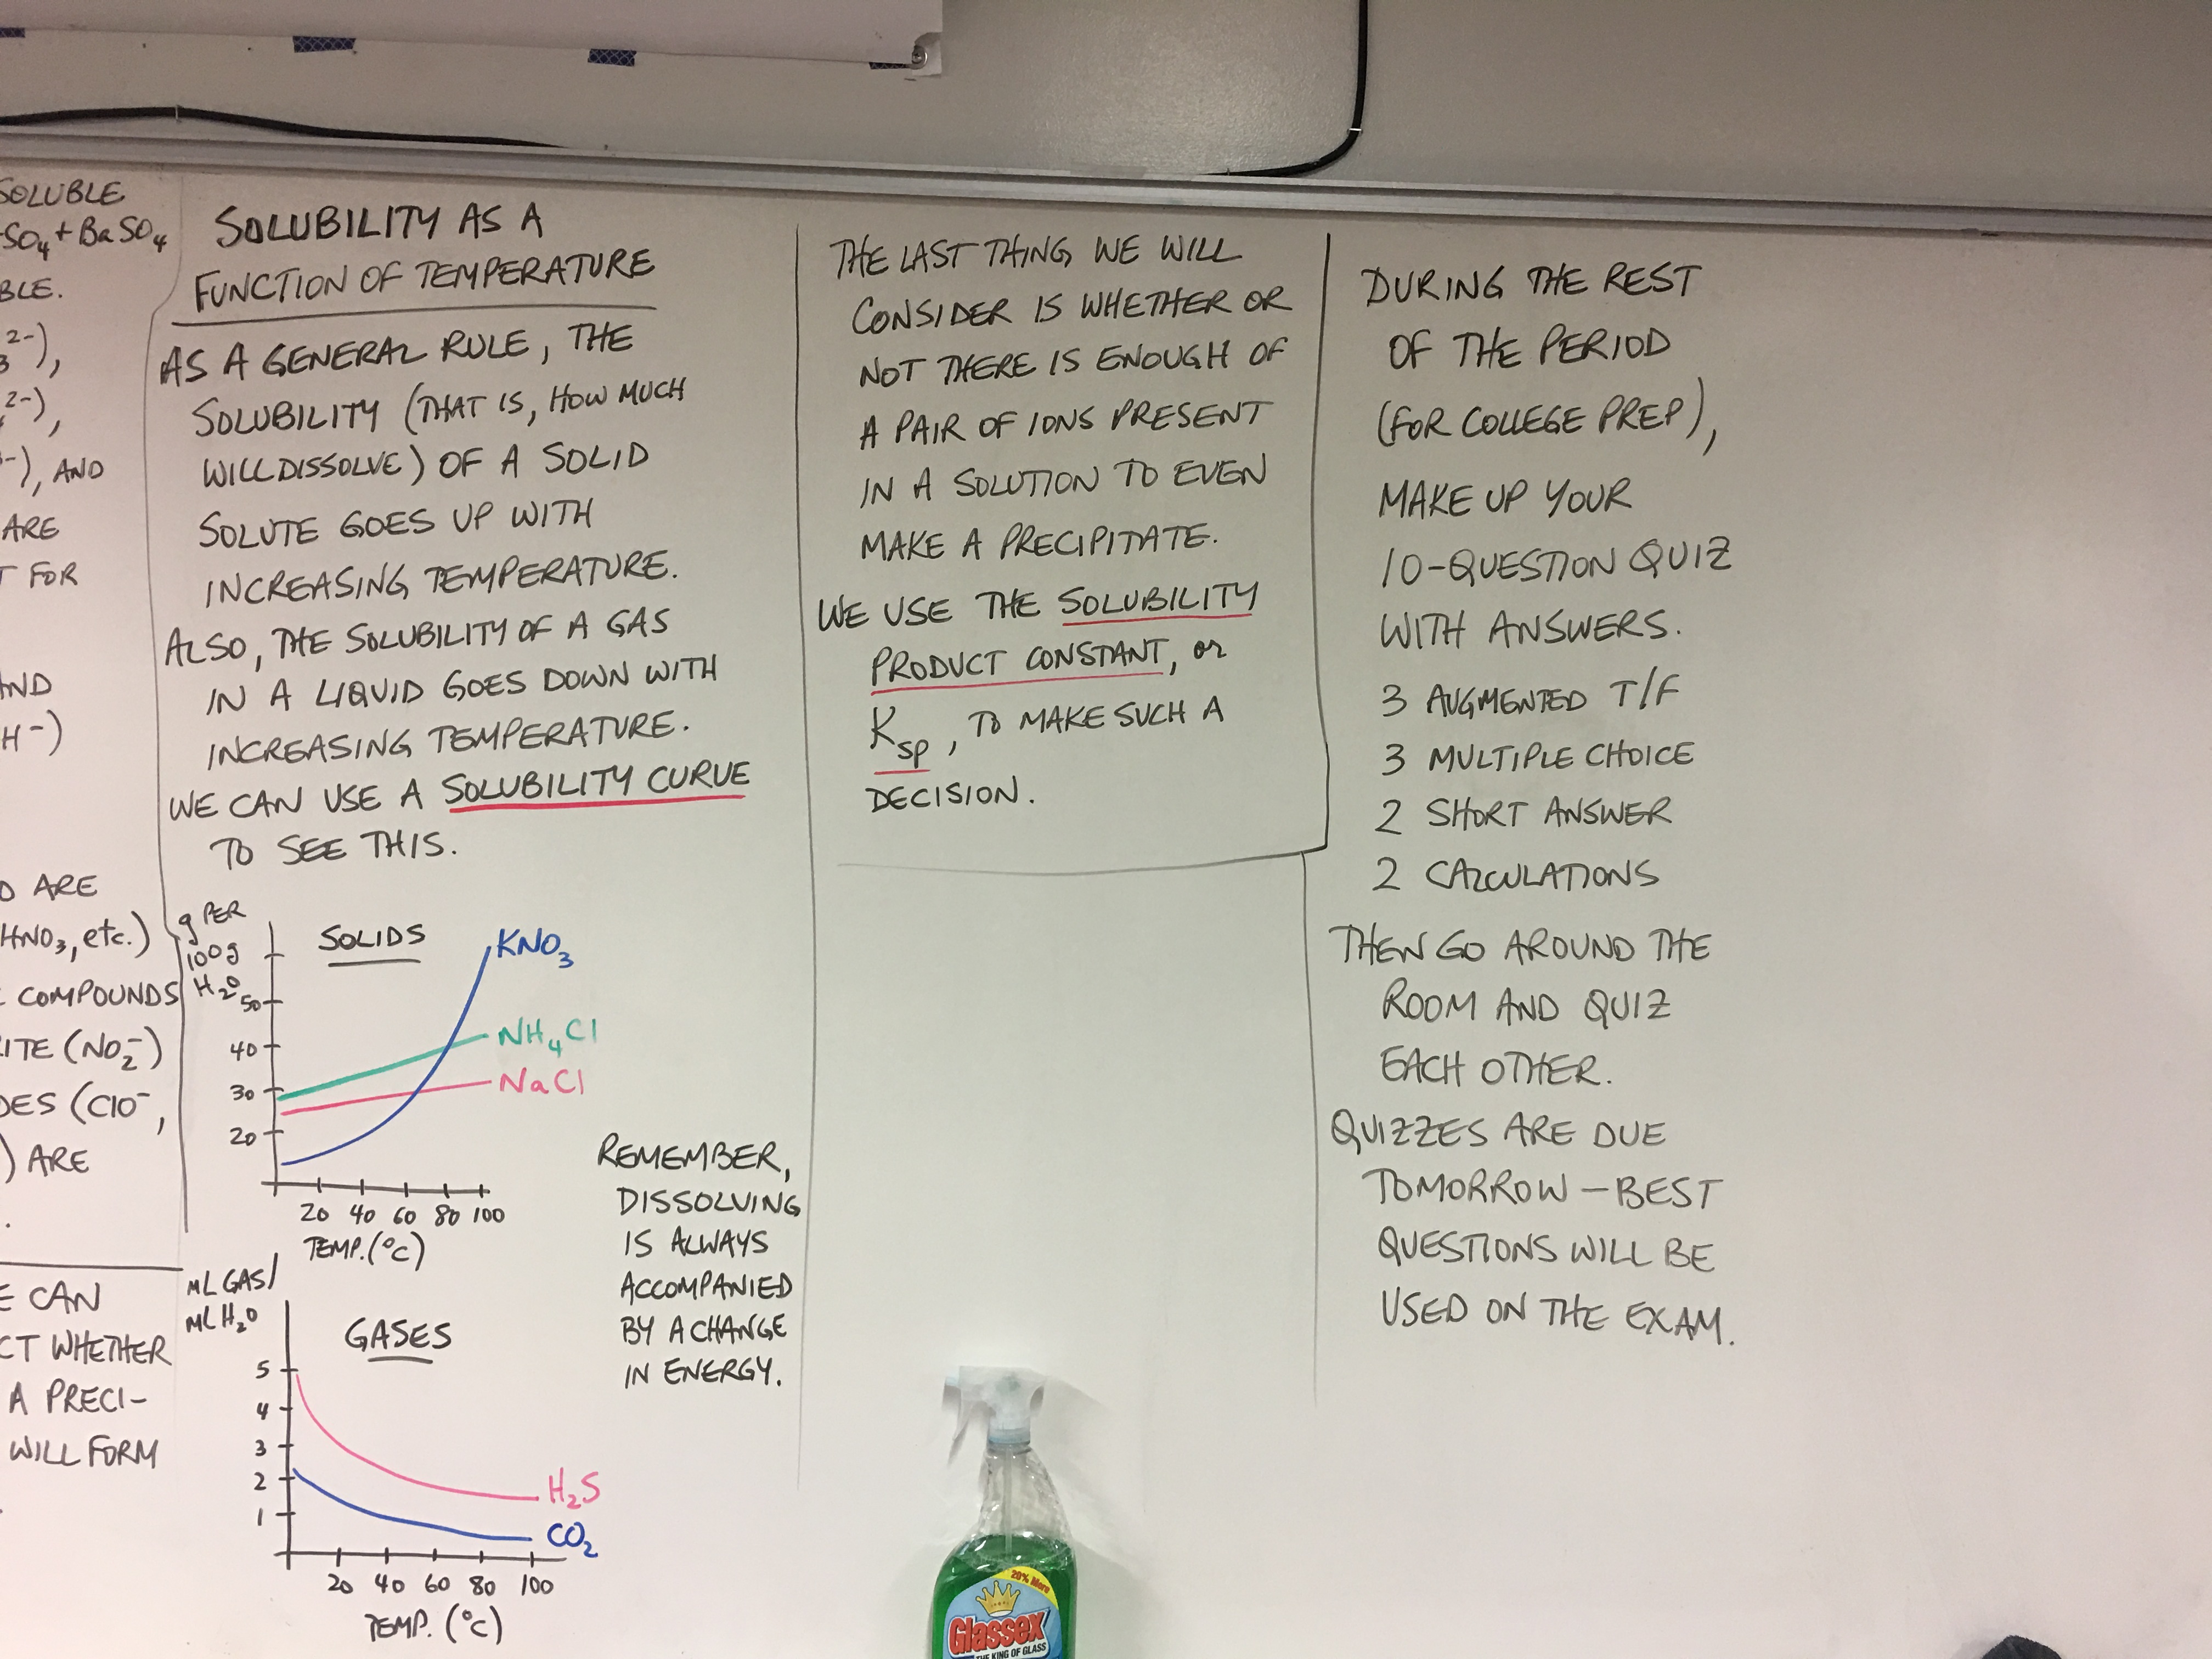 SOLUBLE
SO4 + BaSO4
BLE.
2-),
2-),
-), AND
ARE
FOR
AND
H-)
ARE
HNO3, etc.)
COMPOUNDS
ITE (NO2-)
DES (ClO-,
) ARE
E CAN
CT WHETHER
A PRECI-
WILL FORM
SOLUBILITY AS A
FUNCTION OF TEMPERATURE
AS A GENERAL RULE, THE
SOLUBILITY (THAT IS, HOW MUCH
WILL DISSOLVE) OF A SOLID
SOLUTE GOES UP WITH
INCREASING TEMPERATURE.
ALSO, THE SOLUBILITY OF A GAS
IN A LIQUID GOES DOWN WITH
INCREASING TEMPERATURE.
WE CAN USE A SOLUBILITY CURVE
TO SEE THIS.
g PER
100g
H2O
SOLIDS
KNO3
50
NH4Cl
40
NaCl
30
20
20 40 60 80 100
TEMP. (°C)
REMEMBER,
DISSOLVING
IS ALWAYS
ACCOMPANIED
BY A CHANGE
IN ENERGY.
mL GAS/
mL H2O
GASES
5
4
3
2
1
H2S
CO2
20 40 60 80 100
TEMP. (°C)
THE LAST THING WE WILL
CONSIDER IS WHETHER OR
NOT THERE IS ENOUGH OF
A PAIR OF IONS PRESENT
IN A SOLUTION TO EVEN
MAKE A PRECIPITATE.
WE USE THE SOLUBILITY
PRODUCT CONSTANT, or
Ksp, TO MAKE SUCH A
DECISION.
DURING THE REST
OF THE PERIOD
(FOR COLLEGE PREP),
MAKE UP YOUR
10-QUESTION QUIZ
WITH ANSWERS.
3 AUGMENTED T/F
3 MULTIPLE CHOICE
2 SHORT ANSWER
2 CALCULATIONS
THEN GO AROUND THE
ROOM AND QUIZ
EACH OTHER.
QUIZZES ARE DUE
TOMORROW - BEST
QUESTIONS WILL BE
USED ON THE EXAM.
20% More
Glassex
THE KING OF GLASS